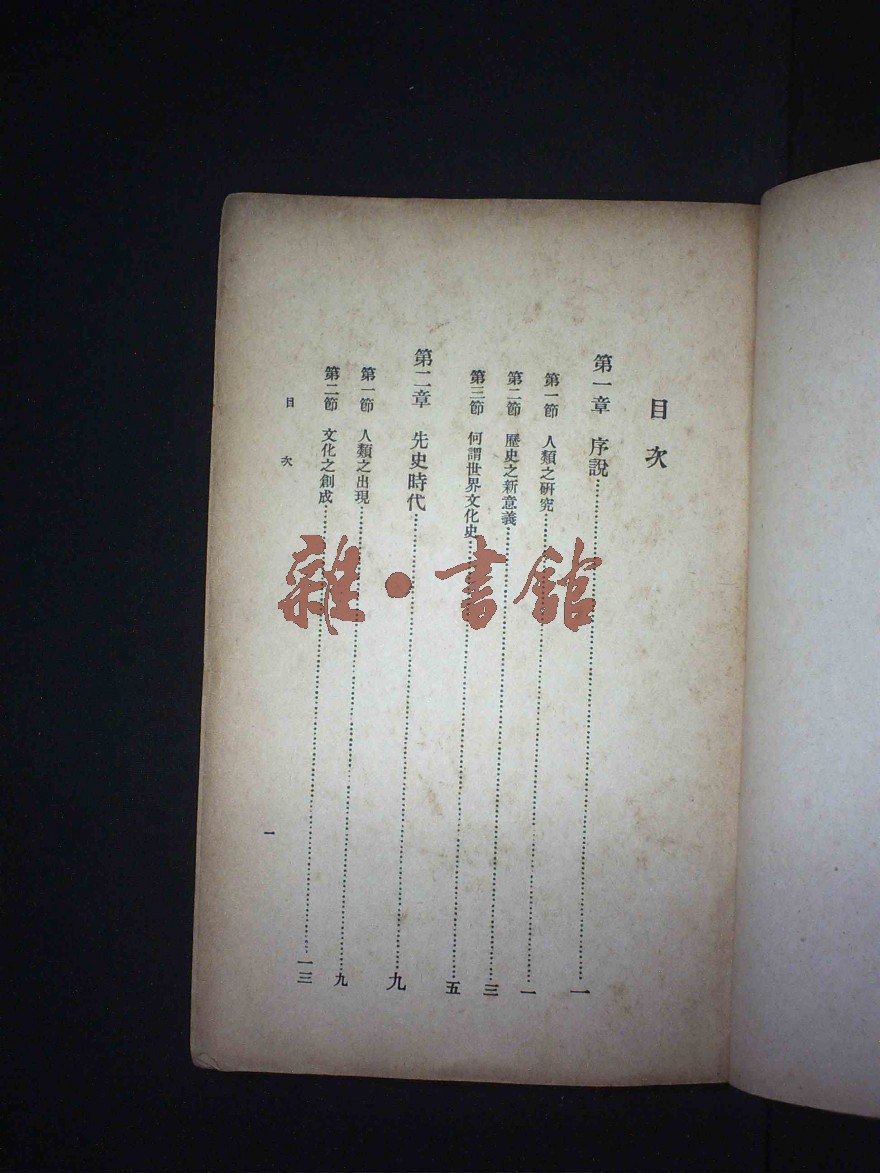 目次
第一章 序說……一
第一節 人類之研究……一
第二節 歷史之新意義……三
第三節 何謂世界文化史……五
第二章 先史時代……九
第一節 人類之出現……九
第二節 文化之創成……一三
目次
一
雜·書館